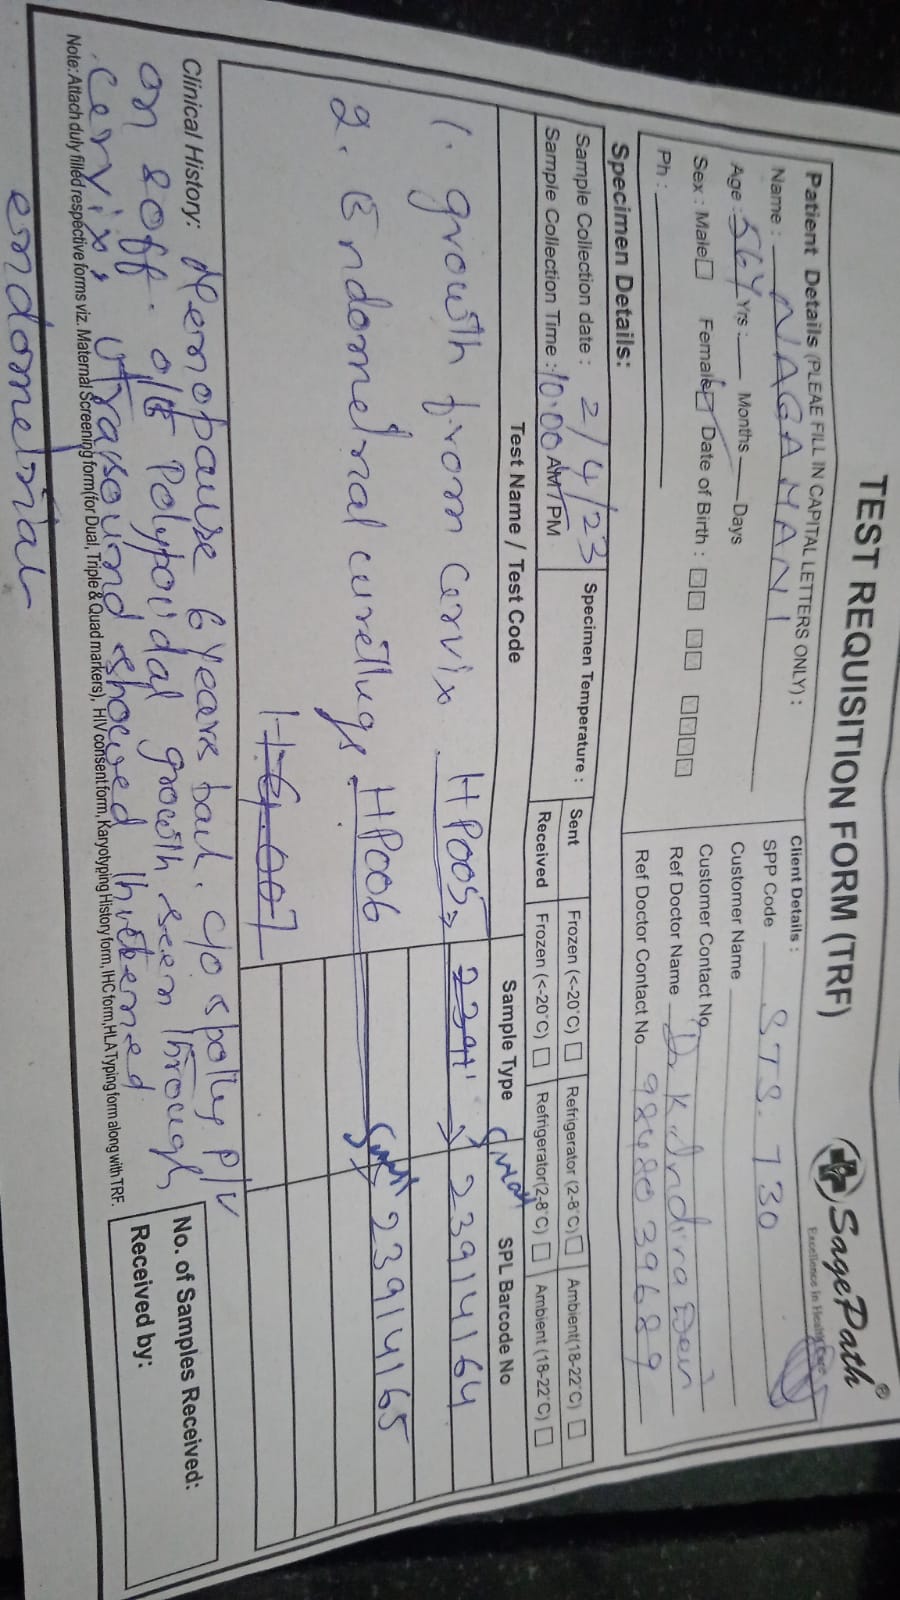 TEST REQUISITION FORM (TRF)
SagePath®
Excellence in Health Care
Patient Details (PLEAE FILL IN CAPITAL LETTERS ONLY) :
Name : NAGAMANI
Age : 56Y Yrs : Months Days
Sex : Male☐ Female☑ Date of Birth : ☐☐ ☐☐ ☐☐☐☐
Ph :
Client Details :
SPP Code STS. 730
Customer Name
Customer Contact No
Ref Doctor Name Dr K. Indira Devi
Ref Doctor Contact No 9848039689
Specimen Details:
Sample Collection date : 2/4/23
Sample Collection Time : 10.00 AM/PM
Specimen Temperature :
Sent Frozen (<-20°C) ☐ Refrigerator (2-8°C) ☐ Ambient(18-22°C) ☐
Received Frozen (<-20°C) ☐ Refrigerator(2-8°C) ☐ Ambient (18-22°C) ☐
Test Name / Test Code Sample Type SPL Barcode No
1. growth from Cervix HP005 → 2391 → Small 23914164
2. Endometrial curettings. HP006 → Small 23914165
Clinical History: Menopause 6 years back. c/o spotting P/V
on & off. o/E Polypoidal growth seen through
cervix, Ultrasound showed thickened
endometrial
Note: Attach duly filled respective forms viz. Maternal Screening form(for Dual, Triple & Quad markers), HIV consent form, Karyotyping History form, IHC form, HLA Typing form along with TRF.
No. of Samples Received:
Received by: